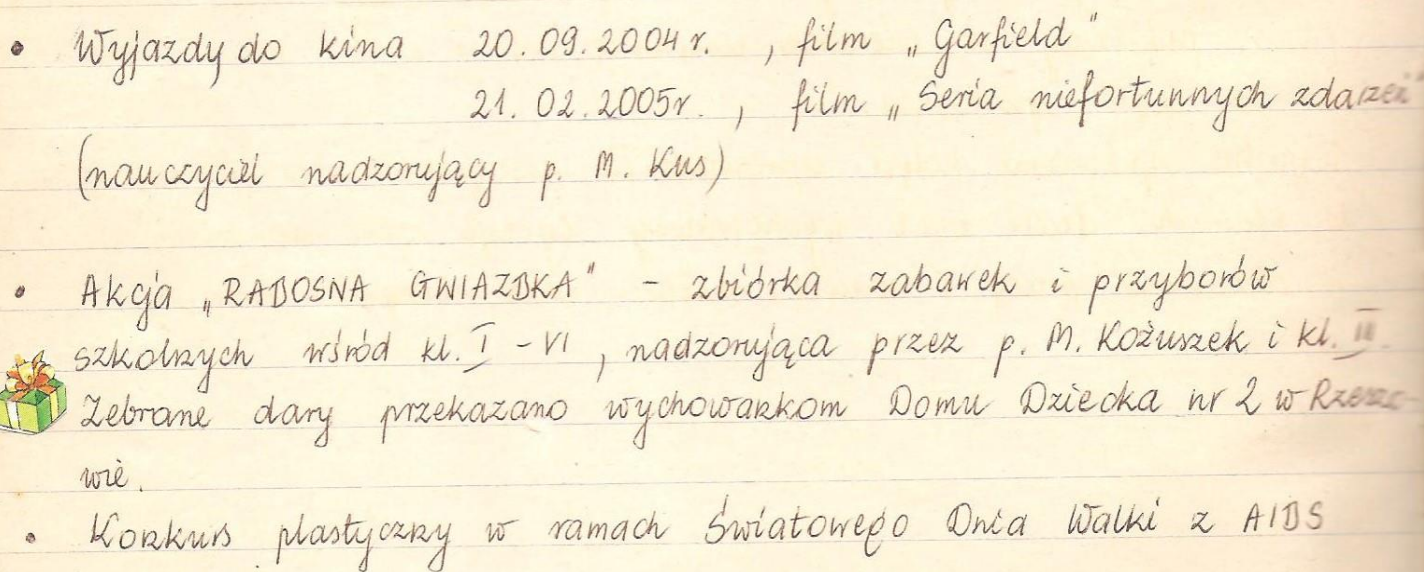 • Wyjazdy do kina 20.09.2004 r. , film „Garfield"
21.02.2005r. , film „Seria niefortunnych zdarzeń"
(nauczyciel nadzorujący p. M. Kus)
• Akcja „RADOSNA GWIAZDKA" - zbiórka zabawek i przyborów
szkolnych wśród kl. I - VI, nadzorująca przez p. M. Kożuszek i kl. III.
Zebrane dary przekazano wychowankom Domu Dziecka nr 2 w Rzeszo-
wie.
• Konkurs plastyczny w ramach Światowego Dnia Walki z AIDS